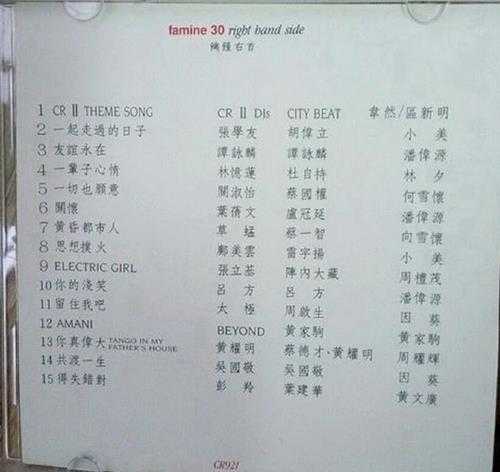 famine 30 right hand side
饑饉右首
1 CR II THEME SONG CR II DJs CITY BEAT 韋然/區新明
2 一起走過的日子 張學友 胡偉立 小美
3 友誼永在 譚詠麟 譚詠麟 潘偉源
4 一輩子心情 林憶蓮 杜自持 林夕
5 一切也願意 關淑怡 蔡國權 何雪懷
6 關懷 葉蒨文 盧冠廷 潘偉源
7 黃昏都市人 草蜢 蔡一智 向雪懷
8 思想撲火 鄺美雲 雷宇揚 小美
9 ELECTRIC GIRL 張立基 陣內大藏 周禮茂
10 你的淺笑 呂方 呂方 潘偉源
11 留住我吧 太極 周啟生 因葵
12 AMANI BEYOND 黃家駒 黃家駒
13 你真偉大 TANGO IN MY FATHER'S HOUSE 黃耀明 蔡德才、黃耀明 周耀輝
14 共渡一生 吳國敬 吳國敬 因葵
15 得失錯對 彭羚 葉建華 黃文廣
CR921